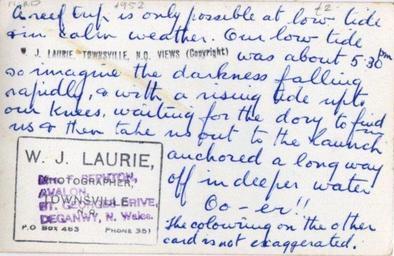 1952
£2
A reef trip is only possible at low tide
& in calm weather. Our low tide
W. J. LAURIE, TOWNSVILLE, N.Q. VIEWS (Copyright) was about 5.30 pm
so imagine the darkness falling
rapidly, & with a rising tide up to
our knees, waiting for the dory to find
us & then take us out to the launch
anchored a long way
off in deeper water
Oo-er!!
The colouring on the other
card is not exaggerated.
W. J. LAURIE,
PHOTOGRAPHER,
AVALON,
TOWNSVILLE
ST. GEORGES DRIVE,
N.Q.
DEGANWY, N. Wales.
P.O BOX 453 PHONE 351